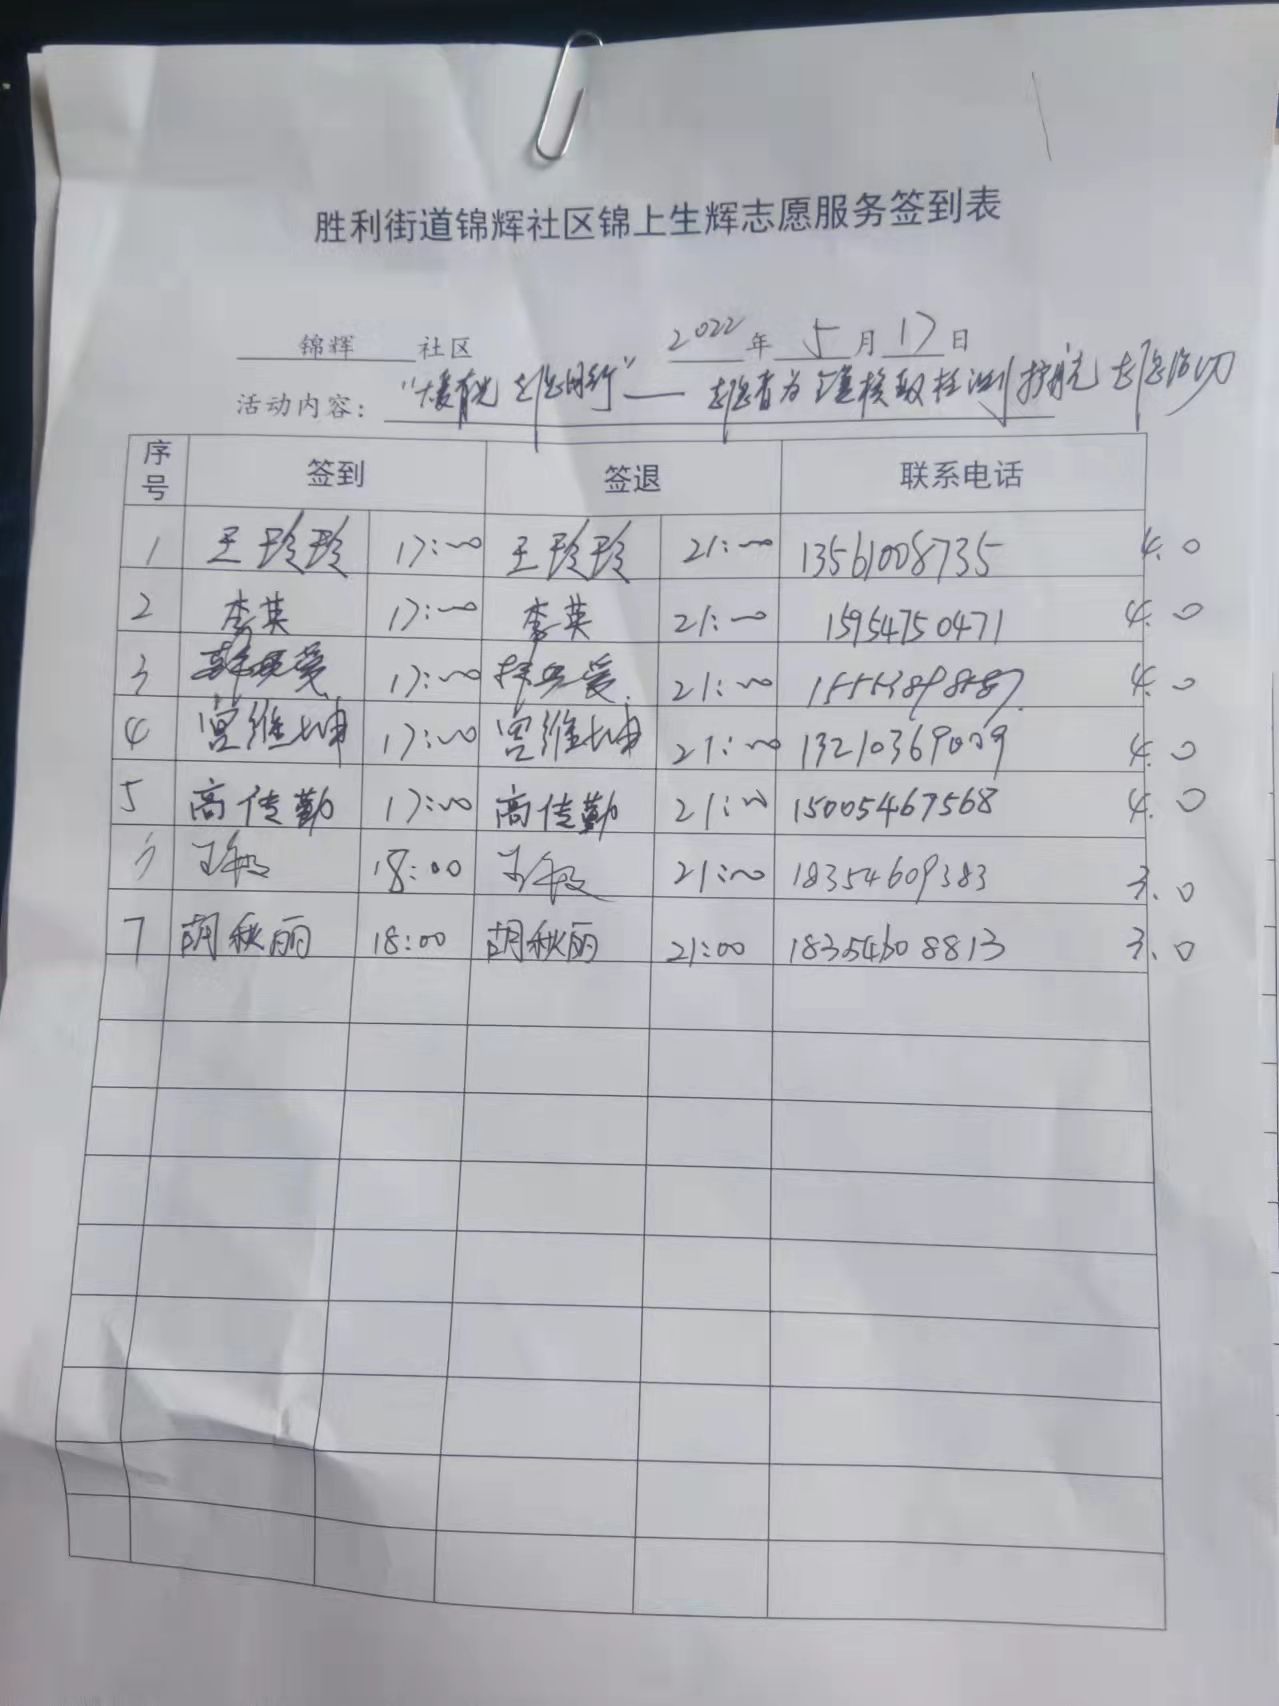 胜利街道锦辉社区锦上生辉志愿服务签到表
锦辉 社区 2022年 5月17日
活动内容：“暖有光 志愿同行”—志愿者为 核酸检测护航 志愿活动
序号 签到 签退 联系电话
1 王玲玲 17:00 王玲玲 21:00 13561008735 4.0
2 李英 17:00 李英 21:00 15954750471 4.0
3 17:00 21:00 4.0
4 宫维坤 17:00 宫维坤 21:00 4.0
5 高传勤 17:00 高传勤 21:00 15005467568 4.0
18:00 21:00 18354609383 3.0
7 胡秋丽 18:00 胡秋丽 21:00 18354608813 3.0